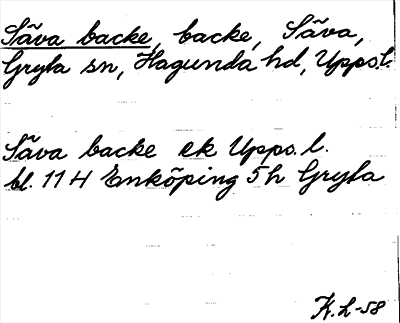 Säva backe, backe, Säva,
Gryta sn, Hagunda hd, Uppsl.
Säva backe ek Upps. l.
bl. 11 H Enköping 5h Gryta
K.L-58